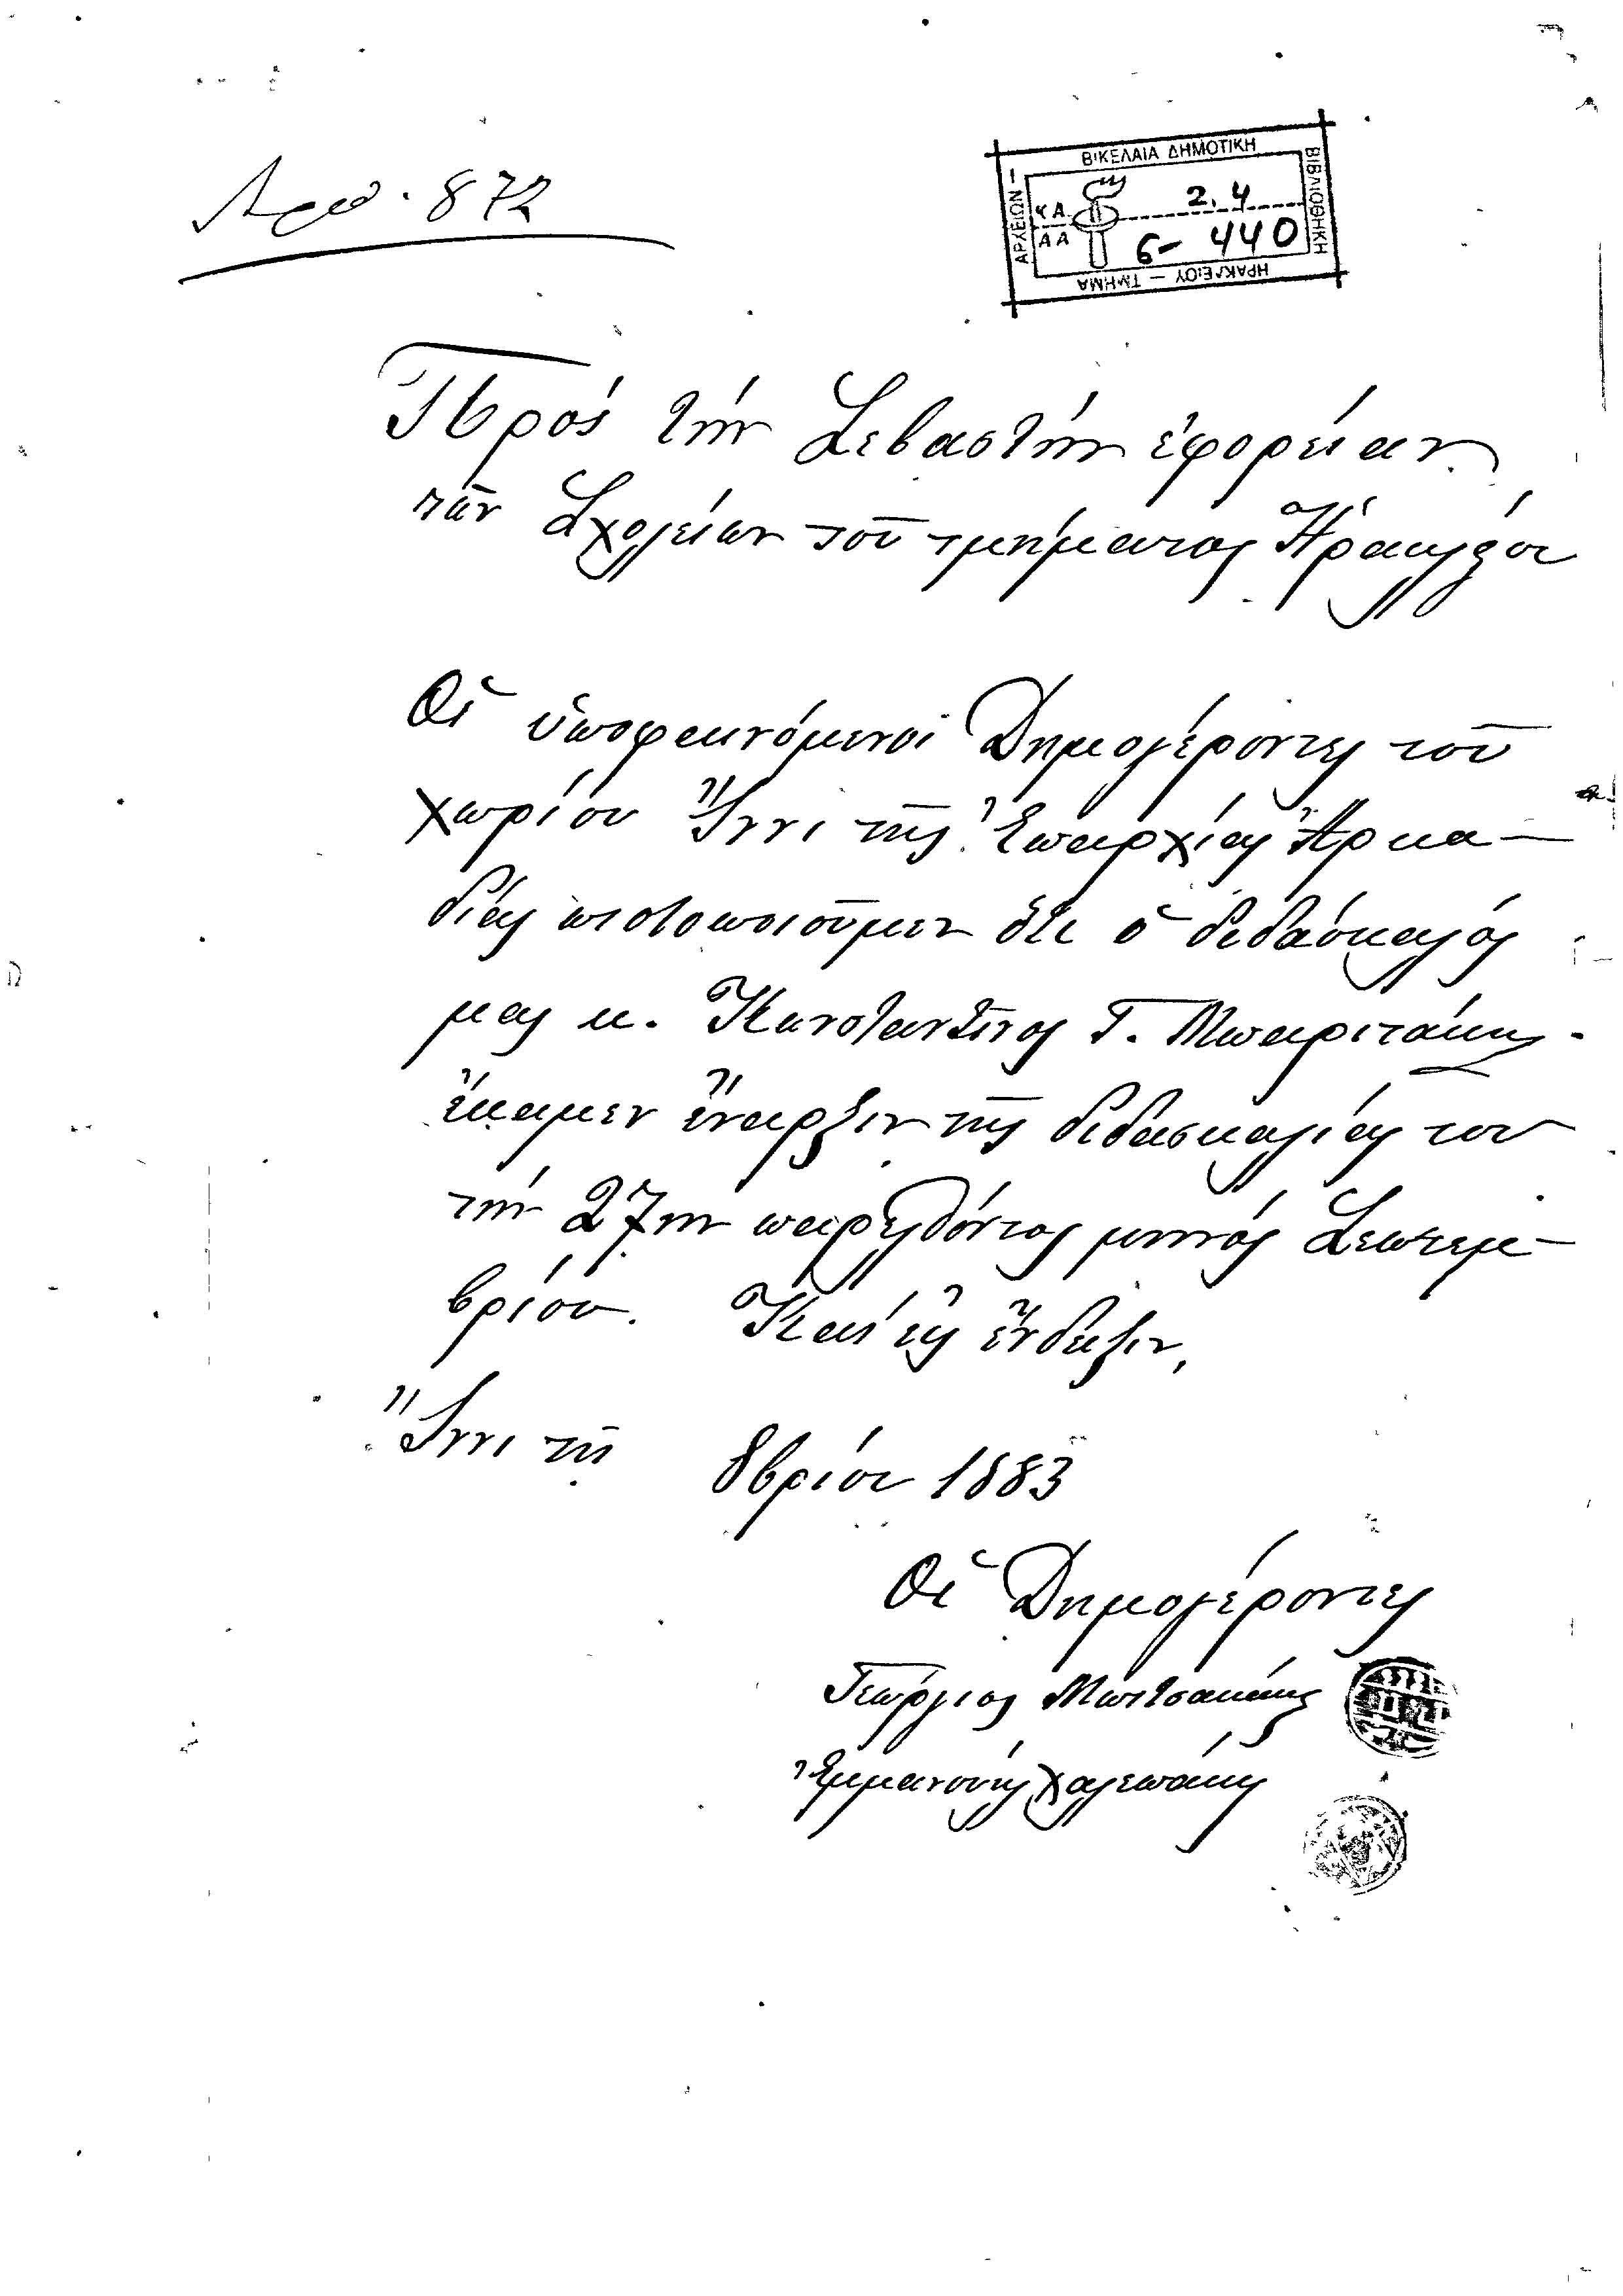 Αριθ. 872
ΒΙΚΕΛΑΙΑ ΔΗΜΟΤΙΚΗ
ΒΙΒΛΙΟΘΗΚΗ
ΗΡΑΚΛΕΙΟΥ — ΤΜΗΜΑ
ΑΡΧΕΙΩΝ —
ΚΑ 2.4
ΑΑ 6- 440
Πρός τήν Σεβαστήν ἐφορείαν
τῶν Σχολείων τοῦ τμήματος Ἡρακλείου
Οἱ ὑποφαινόμενοι Δημογέροντες τοῦ
χωρίου Ἴννι τῆς Ἐπαρχίας Ἀρκα—
δίας πιστοποιοῦμεν ὅτι ὁ διδάσκαλός
μας κ. Κωνσταντῖνος Γ. Μπαριτάκης
ἔκαμεν ἔναρξιν τῆς διδασκαλίας του
τήν 27ην παρελθόντος μηνός Σεπτεμ—
βρίου. Καί εἰς ἔνδειξιν,
Ἴννι τῆς 8βρίου 1883
Οἱ Δημογέροντες
Γεώργιος Μπιτσακάκης
Ἐμμανουήλ Χαλεπάκης